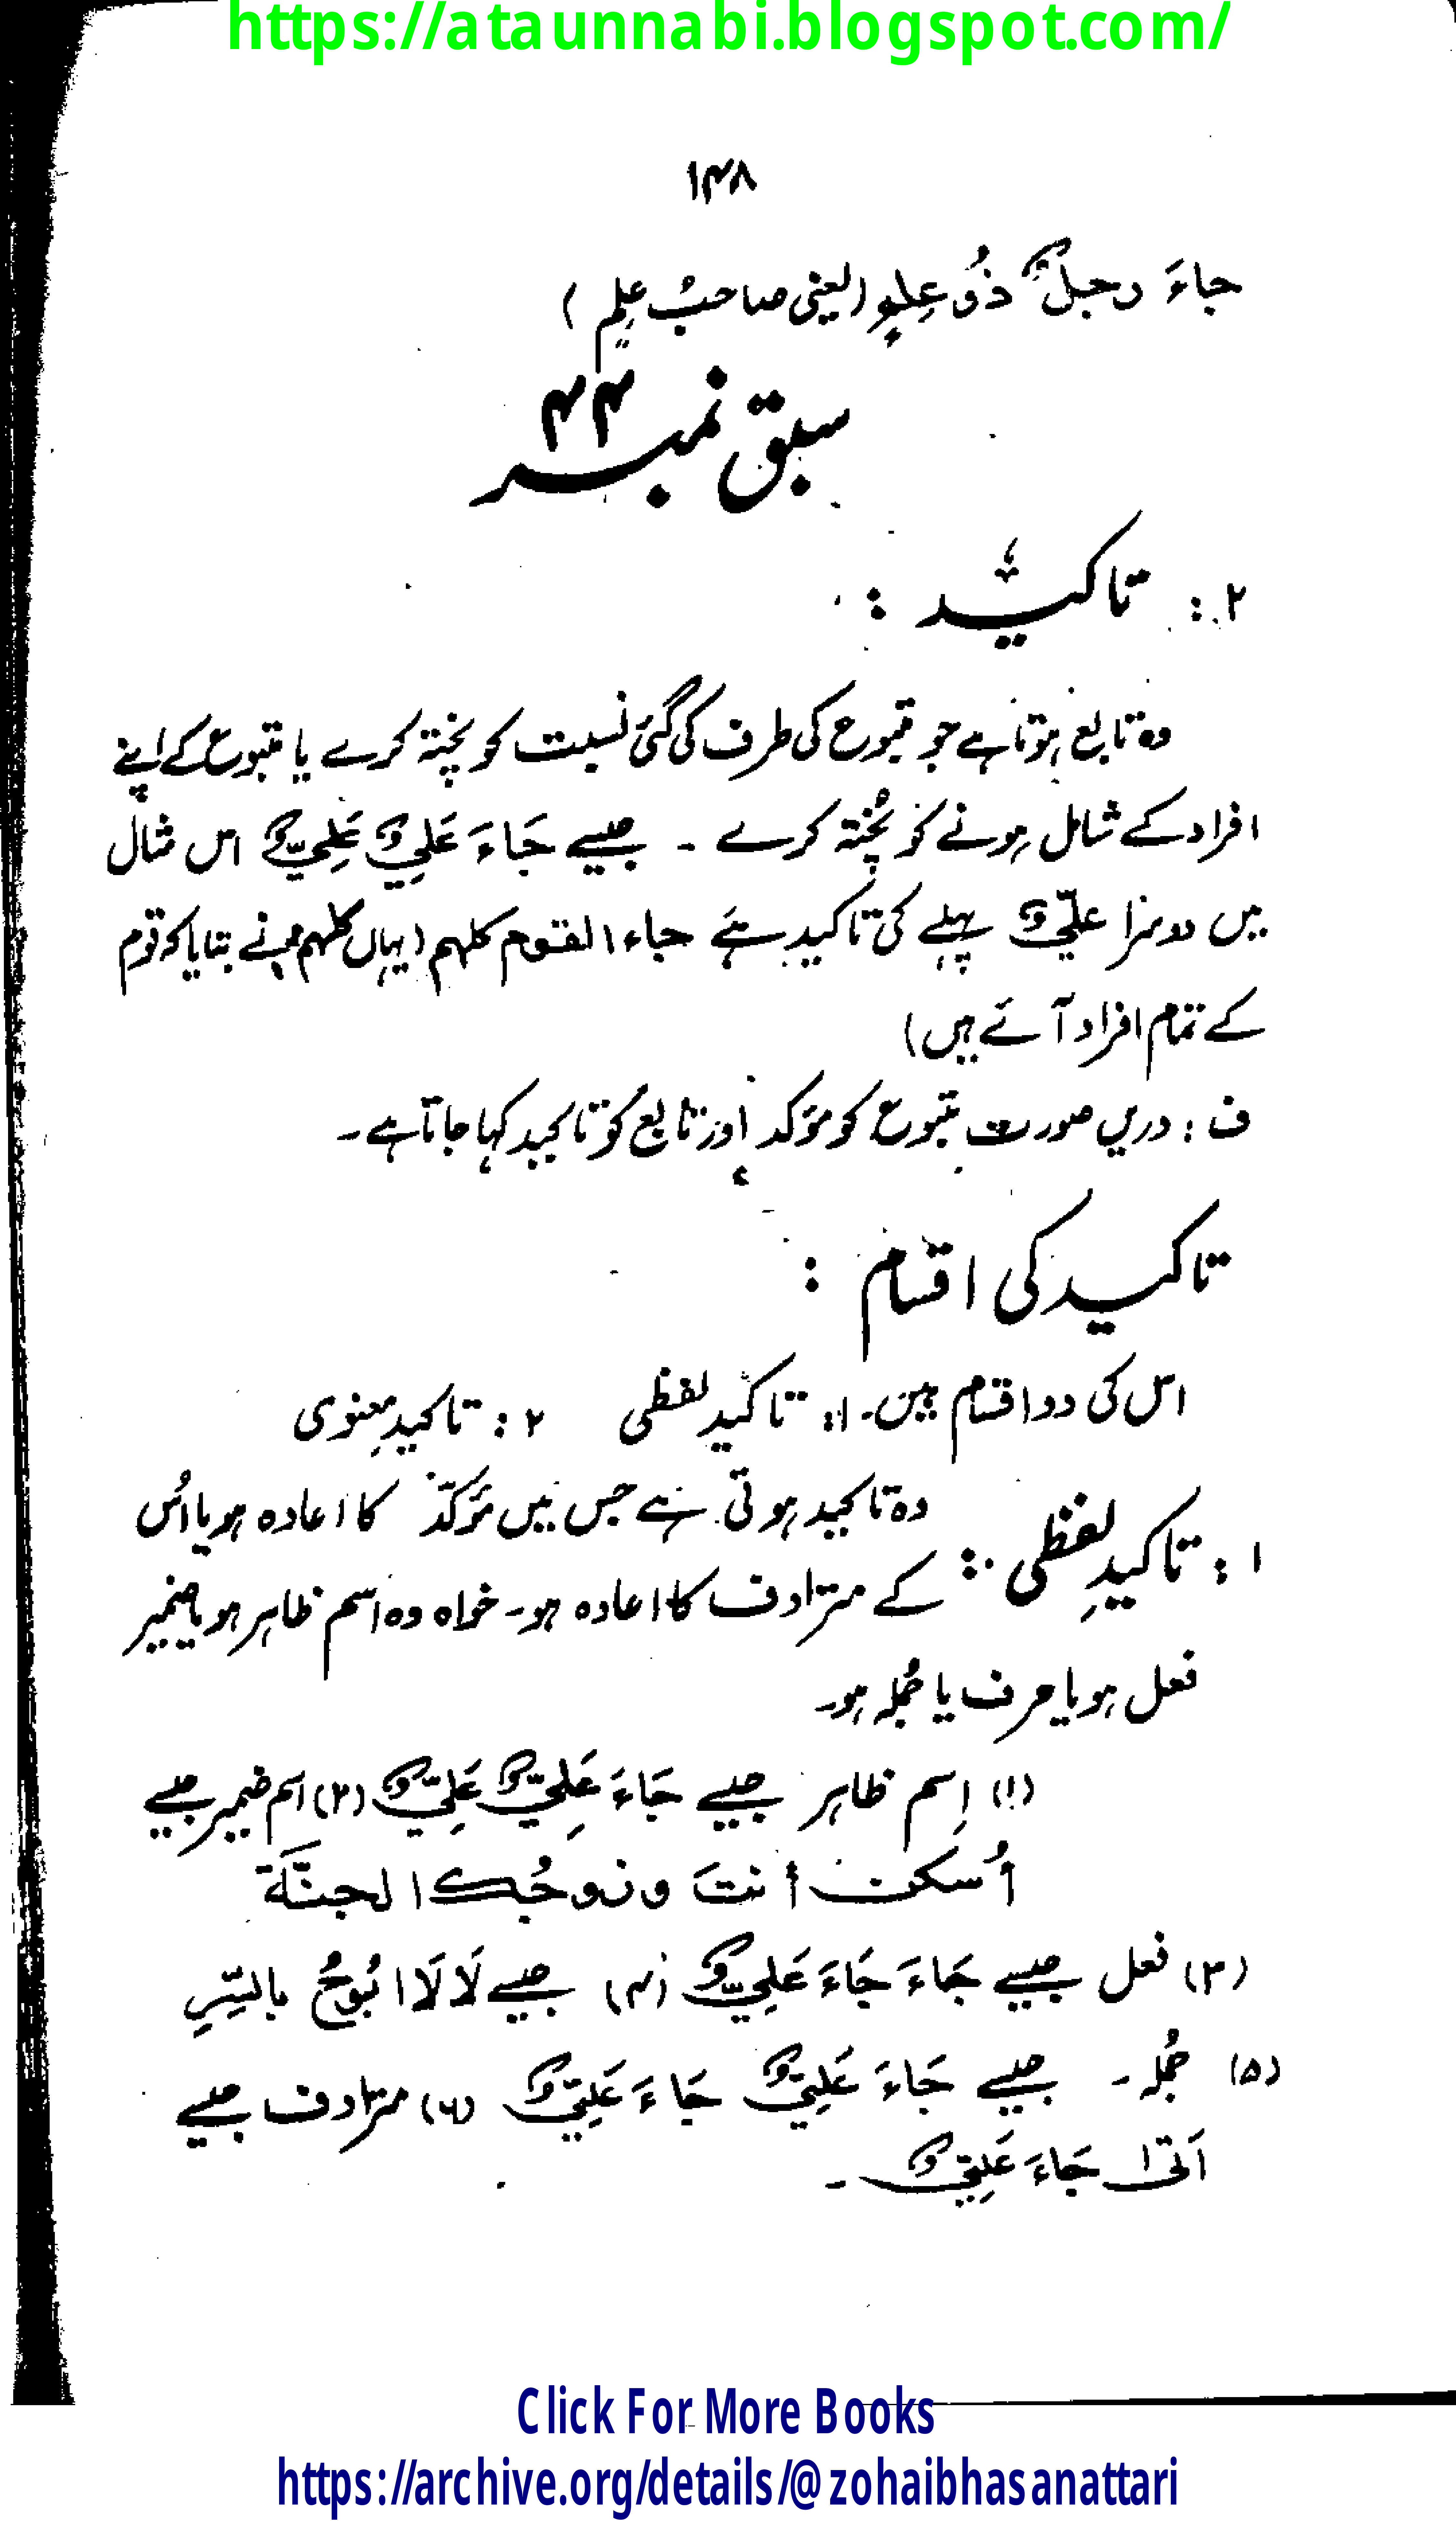 https://ataunnabi.blogspot.com/
۱۴۸
جاءَ رجلٌ ذُو عِلمٍ (یعنی صاحبُ عِلمٍ)
سبق نمبر ۴۴
۲: تاکید :
وہ تابع ہوتا ہے جو متبوع کی طرف کی گئی نسبت کو پختہ کرے یا متبوع کے اپنے
افراد کے شامل ہونے کو پُختہ کرے ۔ جیسے جَاءَ عَلِيٌّ عَلِيٌّ اس مثال
میں دوسرا علیٌّ پہلے کی تاکید ہے جاء القوم کلہم (یہاں کلہم نے بتایا کہ قوم
کے تمام افراد آئے ہیں)
ف : دریں صورت متبوع کو مؤکد اور تابع کو تاکید کہا جاتا ہے ۔
تاکید کی اقسام :
اس کی دو اقسام ہیں۔ ۱: تاکید لفظی ۲: تاکید معنوی
۱ : تاکیدِ لفظی : وہ تاکید ہوتی ہے جس میں مؤکَّد کا اعادہ ہو یا اُس
کے مترادف کا اعادہ ہو۔ خواہ وہ اسم ظاہر ہو یا ضمیر
فعل ہو یا حرف یا جُملہ ہو۔
(۱) اِسم ظاہر جیسے جَاءَ عَلِيٌّ عَلِيٌّ (۲) اسم ضمیر جیسے
اُسکن أنتَ وزوجُك الجنَّةَ
(۳) فعل جیسے جَاءَ جَاءَ عَلِيٌّ (۴) جیسے لَا لَا ابُوحُ بالسِّرِ
(۵) جُملہ ۔ جیسے جَاءَ عَلِيٌّ جَاءَ عَلِيٌّ (۶) مترادف جیسے
اَتىٰ جَاءَ عَلِيٌّ ۔
Click For More Books
https://archive.org/details/@zohaibhasanattari